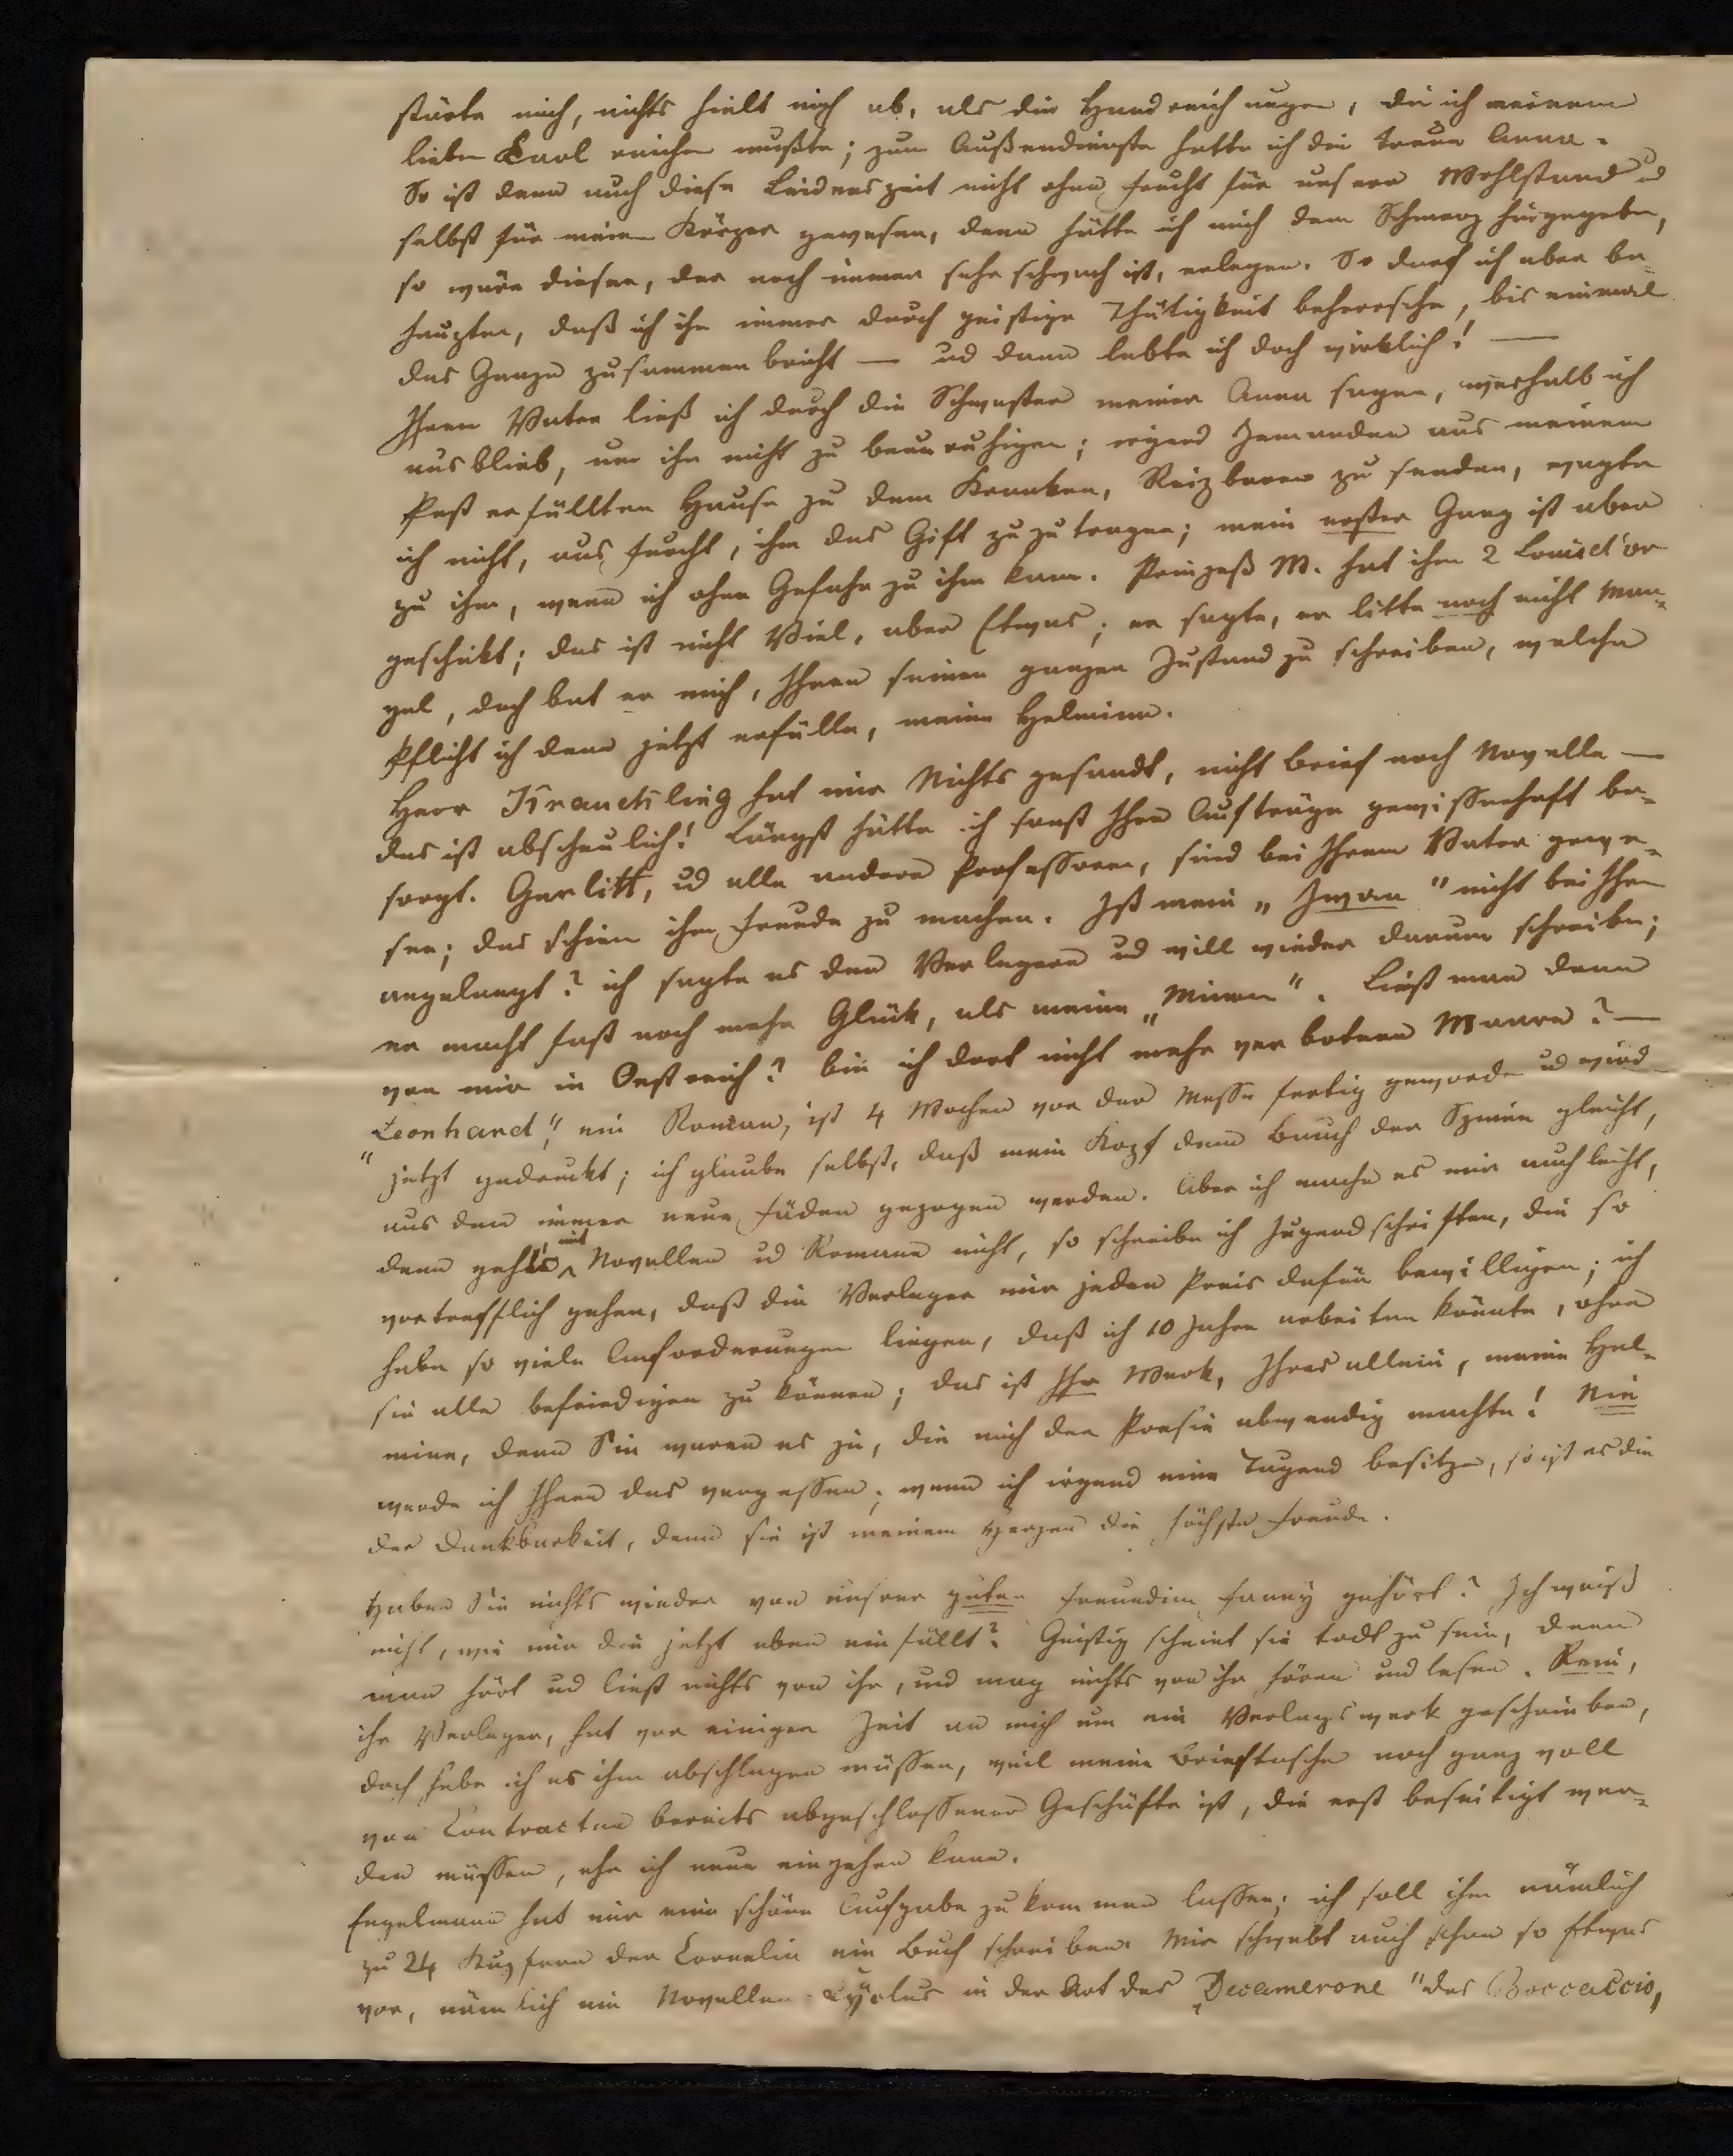 störte mich, nichts hielt mich ab, als die Handreichungen, die ich meinem
lieben Carl reichen mußte; zum Außendienste hatte ich die treue Anna.
So ist denn auch diese Leidenszeit nicht ohne Frucht für unsern Wohlstand ud
selbst für meinen Körper gewesen, denn hätte ich mich dem Schmerz hingegeben,
so wäre dieser, der noch immer sehr schwach ist, erlegen. So darf ich aber be-
haupten, daß ich ihn immer durch geistige Thätigkeit beherrsche, bis einmal
das Ganze zusammen bricht — ud dann lebte ich doch wirklich! —
Ihrem Vater ließ ich durch die Schwester meiner Anna sagen, weshalb ich
ausblieb, um ihn nicht zu beunruhigen; irgend Jemanden aus meinem
Pest erfüllten Hause zu dem Kranken, Reizbaren zu senden, wagte
ich nicht, aus Furcht, ihm das Gift zu zu tragen; mein erster Gang ist aber
zu ihm, wenn ich ohne Gefahr zu ihm kann. Prinzeß M. hat ihm 2 Louisd'or
geschickt; das ist nicht Viel, aber Etwas; er sagte, er litte noch nicht Man-
gel, doch bat er mich, Ihnen seinen ganzen Zustand zu schreiben, welche
Pflicht ich denn jetzt erfülle, meine Helmina.
Herr Krauchling hat mir Nichts gesandt, nicht Brief noch Novelle —
das ist abscheulich! Längst hätte ich sonst Ihre Aufträge gewissenhaft be-
sorgt. Garlitt, ud alle andere Professoren, sind bei Ihrem Vater gewe-
sen; das schien ihm Freude zu machen. Ist mein „Iwan" nicht bei Ihnen
angelangt? ich sagte es den Verlegern ud will wieder darum schreiben;
er macht fast noch mehr Glück, als meine „Minen". Liest man denn
von mir in Oestreich? bin ich dort nicht mehr verbotene Waare? —
„Leonhard", ein Roman, ist 4 Wochen vor der Messe fertig geworden ud wird
jetzt gedruckt; ich glaube selbst, daß mein Kopf dem Bauch der Spinne gleicht,
aus dem immer neue Fäden gezogen werden. Aber ich mache es mir auch leicht,
denn geht's mit Novellen ud Romane nicht, so schreibe ich Jugendschriften, die so
vortrefflich gehen, daß die Verleger mir jeden Preis dafür bewilligen; ich
habe so viele Anforderungen liegen, daß ich 10 Jahre arbeiten könnte, ohne
sie alle befriedigen zu können; das ist Ihr Werk, Ihres allein, meine Hel-
mina, denn Sie waren es ja, die mich der Poesie abwendig machte! Nie
werde ich Ihnen das vergessen; wenn ich irgend eine Tugend besitze, so ist es die
der Dankbarkeit, denn sie ist meinem Herzen die höchste Freude.
Haben Sie nichts wieder von unsrer guten Freundin Fanny gehört? Ich weiß
nicht, wie mir die jetzt eben einfällt? Geistig scheint sie todt zu sein, denn
man hört ud liest nichts von ihr, und mag nichts von ihr hören und lesen. Rein,
ihr Verleger, hat vor einiger Zeit an mich um ein Verlagswerk geschrieben,
doch habe ich es ihm abschlagen müssen, weil meine Brieftasche noch ganz voll
von Contracten bereits abgeschlossener Geschäfte ist, die erst beseitigt wer-
den müssen, ehe ich neue eingehen kann.
Engelmann hat mir eine schöne Aufgabe zu kommen lassen; ich soll ihm nämlich
zu 24 Kupfern der Cornelia ein Buch schreiben. Mir schwebt auch schon so Etwas
vor, nämlich ein Novellen-Cyclus in der Art des „Decamerone" des Boccaccio,